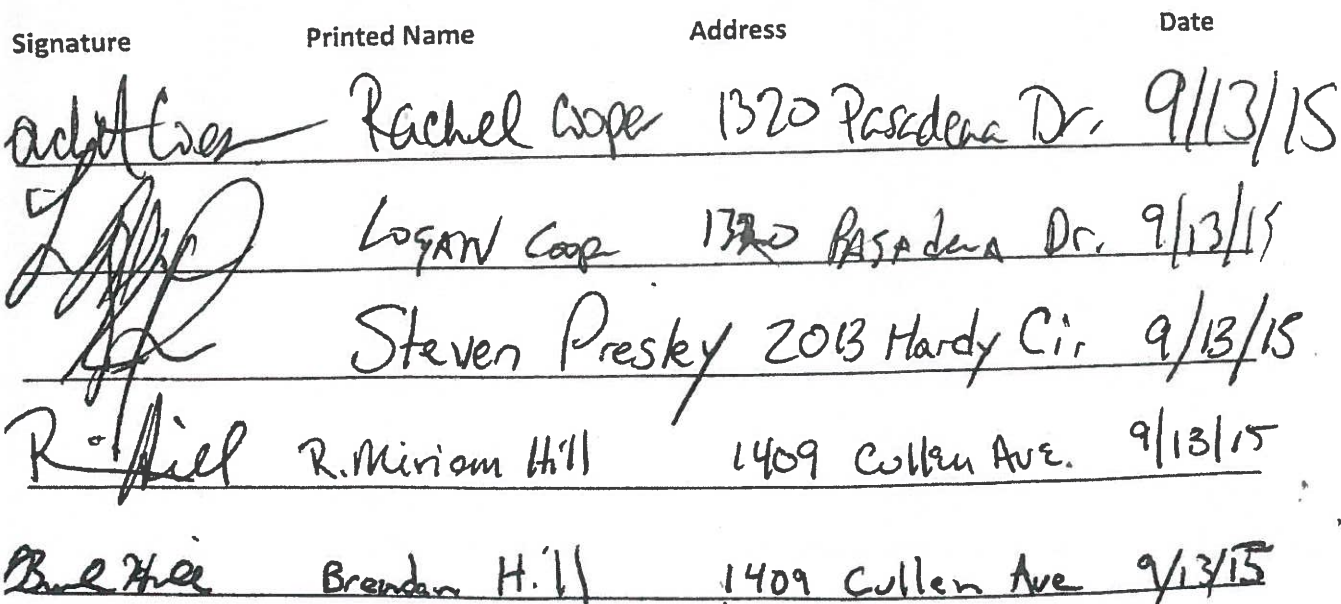 Signature Printed Name Address Date
Rachel Cooper 1320 Pasadena Dr. 9/13/15
Logan Coop 1320 Pasadena Dr. 9/13/15
Steven Presley 2013 Hardy Cir 9/13/15
R. Hill R. Miriam Hill 1409 Cullen Ave. 9/13/15
Hill Brendan Hill 1409 Cullen Ave 9/13/15